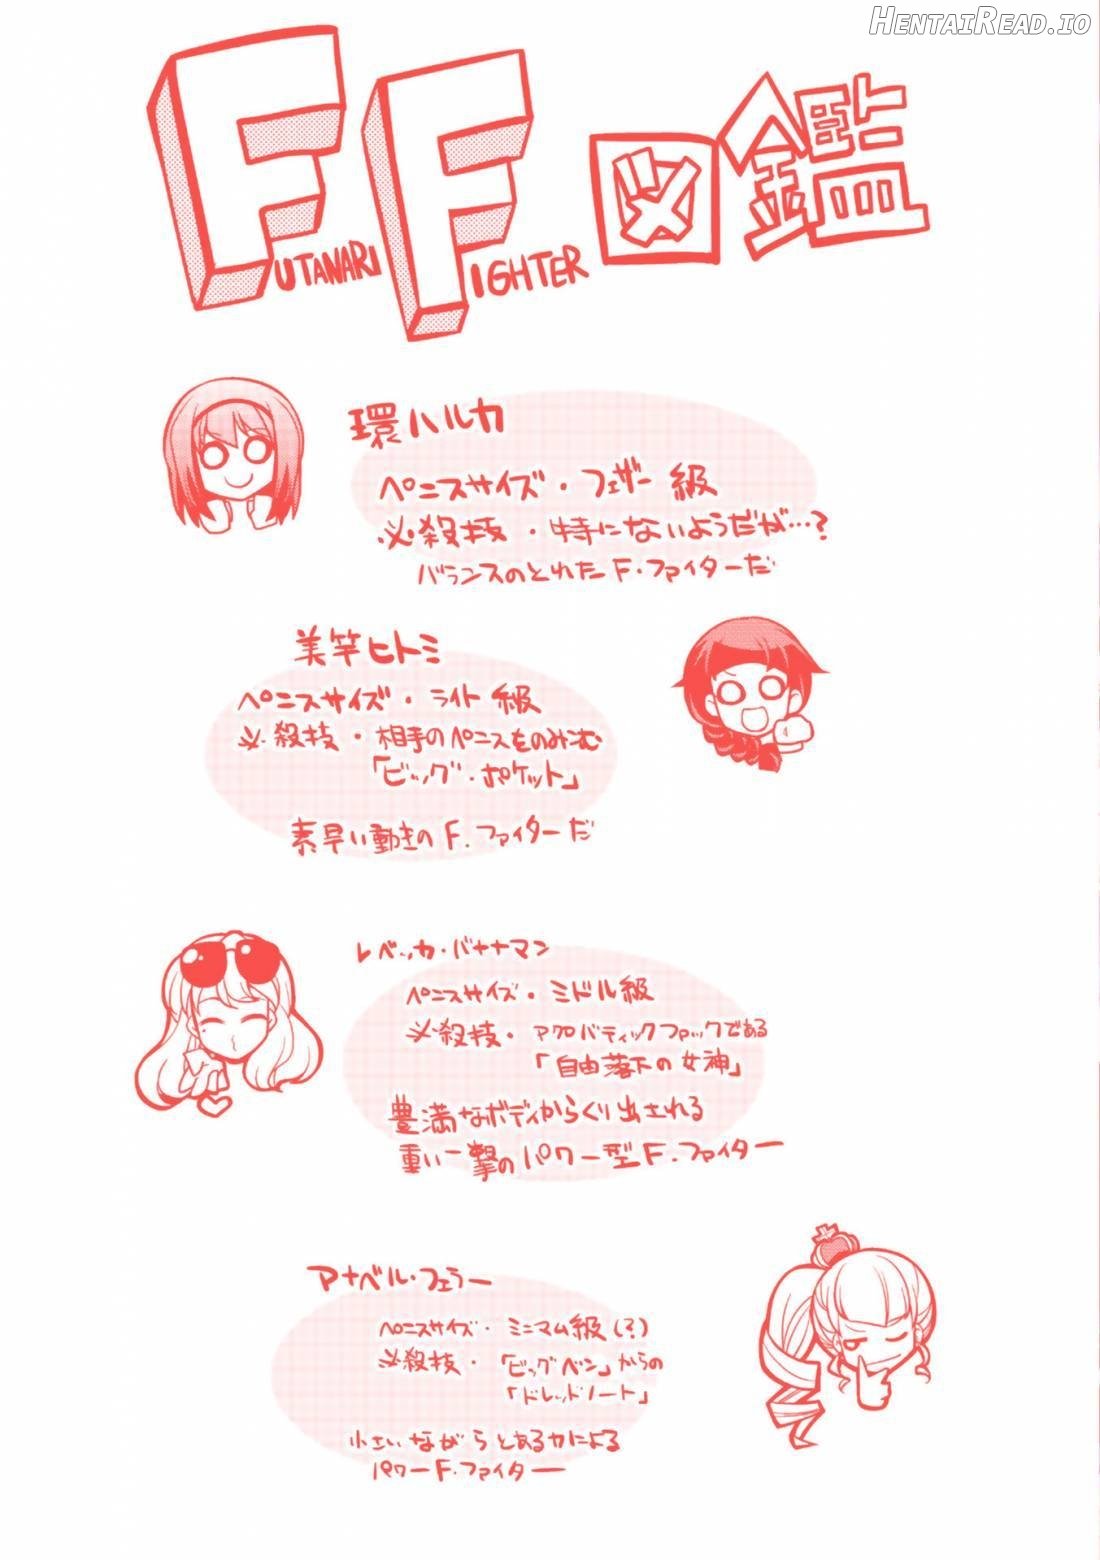 HENTAIREAD.IO
FUTANARI FIGHTER 図鑑
環ハルカ
ペニスサイズ・フェザー級
必殺技・特にないようだが…?
バランスのとれたF.ファイターだ
美竿ヒトミ
ペニスサイズ・ライト級
必殺技・相手のペニスをのみこむ
「ビッグ・ポケット」
素早い動きのF.ファイターだ
レベッカ・バナナマン
ペニスサイズ・ミドル級
必殺技・アクロバティックファックである
「自由落下の女神」
豊満なボディからくり出される
重い一撃のパワー型F.ファイター
アナベル・フェラー
ペニスサイズ・ミニマム級(?)
必殺技・「ビッグベン」からの
「ドレッドノート」
小さいながらとある力による
パワーF.ファイター